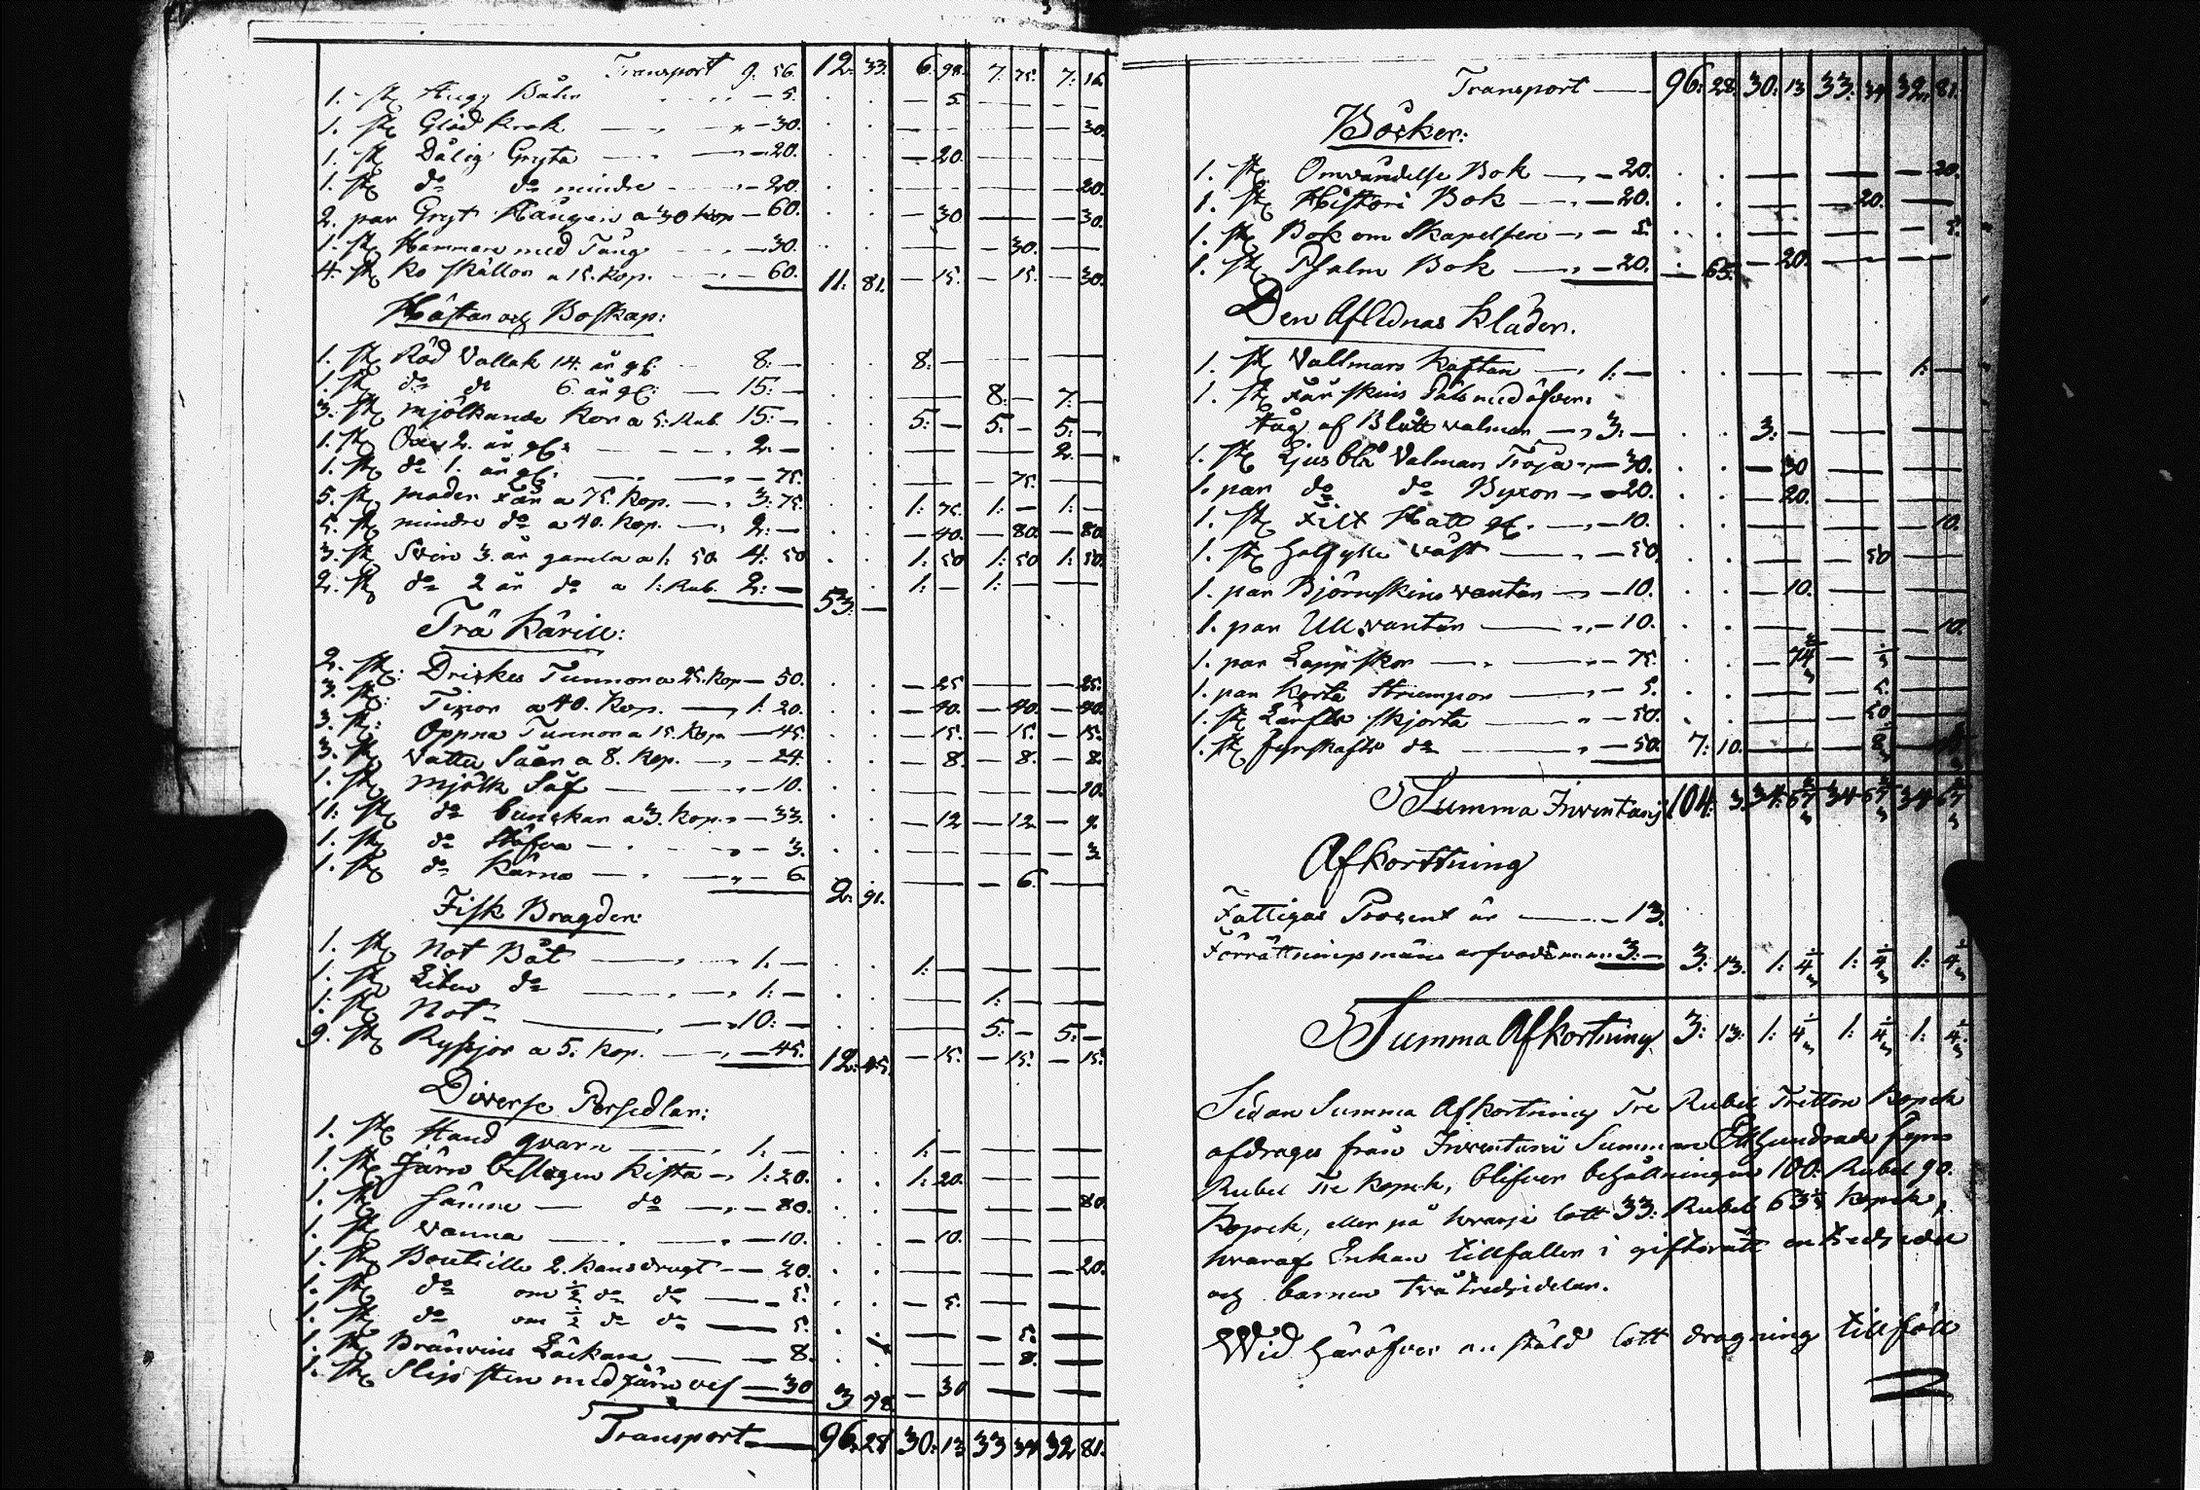 Transport 9. 56. 12: 33. 6: 98. 7: 75. 7: 16.
1. st Hugg — 5. . . — 5. — — — —
1. st Glöd krok — 30. . . — — — — — 30.
1. st Dålig Gryta — 20. . . — 20. — — — —
1. st do do mindre — 20. . . — — — — — 20.
2. par Gryt Hängen a 30 kop — 60. . . — 30 — — — 30.
1. st Hammare med Tång — 30. . . — — — 30. — —
4. st Ko skällor a 15. kop. — 60. 11: 81. — 15. — 15. — 30.
Hästar och Boskap:
1. st Röd Vallak 14. år gl: 8: — . . 8: — — — — —
1. st do do 6. år gl: — 15: — . . — — 8: — 7: —
3. st mjölkande Kor a 5: Rub. 15: — . . 5: — 5: — 5: —
1. st Oxe 2. år gl: 2: — . . — — — — 2. —
1. st do 1. år gl. — 75. . . — — — 75. — —
5. st moder får a 75. kop. — 3: 75. . . 1: 75. 1: — 1: —
5. st mindre do a 40. kop. — 2: — . . — 40. — 80. — 80.
3. st Svin 3. år gamla a 1: 50. 4: 50 . . 1: 50 1: 50 1: 50.
2. st do 2 år do a 1: Rub. 2: — 53: — 1: — 1: — — —
Trä Kärill:
2. st: Drickes Tunnor a 25. kop — 50. . . — 25 — — — 25.
3. st: Tinor a 40. kop. — 1: 20. . . — 40. — 40. — 40.
3. st: Öppna Tunnor a 15. kop — 45. . . — 15. — 15. — 15.
3. st Vattu Såar a 8. kop. — 24. . . — 8. — 8. — 8.
1. st mjölk Såf — 10. . . — — — — — 10.
11: st do bunckar a 3. kop. — 33. . . — 12 — 12 — 9.
1. st do Stäfva — 3. . . — — — — — 3.
1. st do Kärna — 6. 2: 91. — — — 6. — —
Fisk Bragder:
1. st Not Båt — 1: — . . 1: — — — — —
1. st Liten do — 1: — . . — — 1: — — —
1: st Not — 10: — . . — — 5: — 5: —
9. st Ryssjor a 5: kop. — 45. 12: 45. — 15. — 15. — 15.
Diverse Persedlar:
1. st Hand qvarn — 1: — . . 1: — — — — —
1. st Järn beslagen Kista — 1: 20. . . 1: 20. — — — —
1. st sämre — do — 80. . . — — — — — 80.
1. st Vanna — 10. . . — 10. — — — —
1. st Bouteille 2. kans drugt — 20. . . — — — — — 20.
1. st do om ½ do do — 5. . . — 5. — — — —
1. st do om ½ do do — 5. . . — — — 5. — —
1. st Bränvins Läckare — 8. . . — — — 8. — —
1. st Slip sten med järn vef — 30 3 78 — 30 — — — —
Transport — 96: 28 30: 13 33 34 32 81.
Transport — 96: 28. 30: 13 33: 34 32: 81.
Böcker:
1. st Omvändelse Bok — 20. . . — — — — — 20.
1. st Histori Bok — 20. . . — — — 20. — —
1. st Bok om Skapelsen — 5. . . — — — — — 5.
1. st Psalm Bok — 20. — 65. — 20. — — — —
Den Aflidnas Kläder.
1. st Vallmars Kaftan — 1: — . . — — — — 1: —
1. st Får skins Päls med öfver
tåg af Blått valmar — 3: — . . 3: — — — — —
1. st Ljus blå Valmars Tröja — 30. . . — 30 — — — —
1. par do do Byxor — 20. . . — 20. — — — —
1. st Filt Hatt gl. — 10. . . — — — — — 10.
1. st Halfylle väst — 50. . . — — — 50 — —
1. par Björnskins vantar — 10. . . — 10. — — — —
1. par Ull vantar — 10. . . — — — — — 10.
1. par Lapp skor — 75. . . — 74⅔ — ⅓ — —
1. par korta Strumpor — 5. . . — — — 5. — —
1. st Lärfts skjorta — 50. . . — — — 50 — —
1. st fyrskafts do — 50. 7: 10.
Summa Inventarij 104: 3. 34: 57⅔ 34 57⅔ 34 57⅔
Afkorttning
Fattigas Procent är — 13.
Förrättningsmäns arfvode — 3: — 3: 13. 1: 4⅓ 1: 4⅓ 1: 4⅓
Summa Afkortning 3: 13: 1: 4⅓ 1: 4⅓ 1: 4⅓
Sedan Summa Afkortning Tre Rubel Tretton kopek
afdrages från Inventarii Summan Etthundrade fyra
Rubel Tre kopek, blifver behållningen 100: Rubel 90.
kopek, eller på hvarje lott 33: Rubel 63⅓ kopek,
hvaraf Enkan tillfaller i giftorätt en tredjedel
och barnen två tredjedelar.
Wid häröfver anstäld lott dragning tillföll